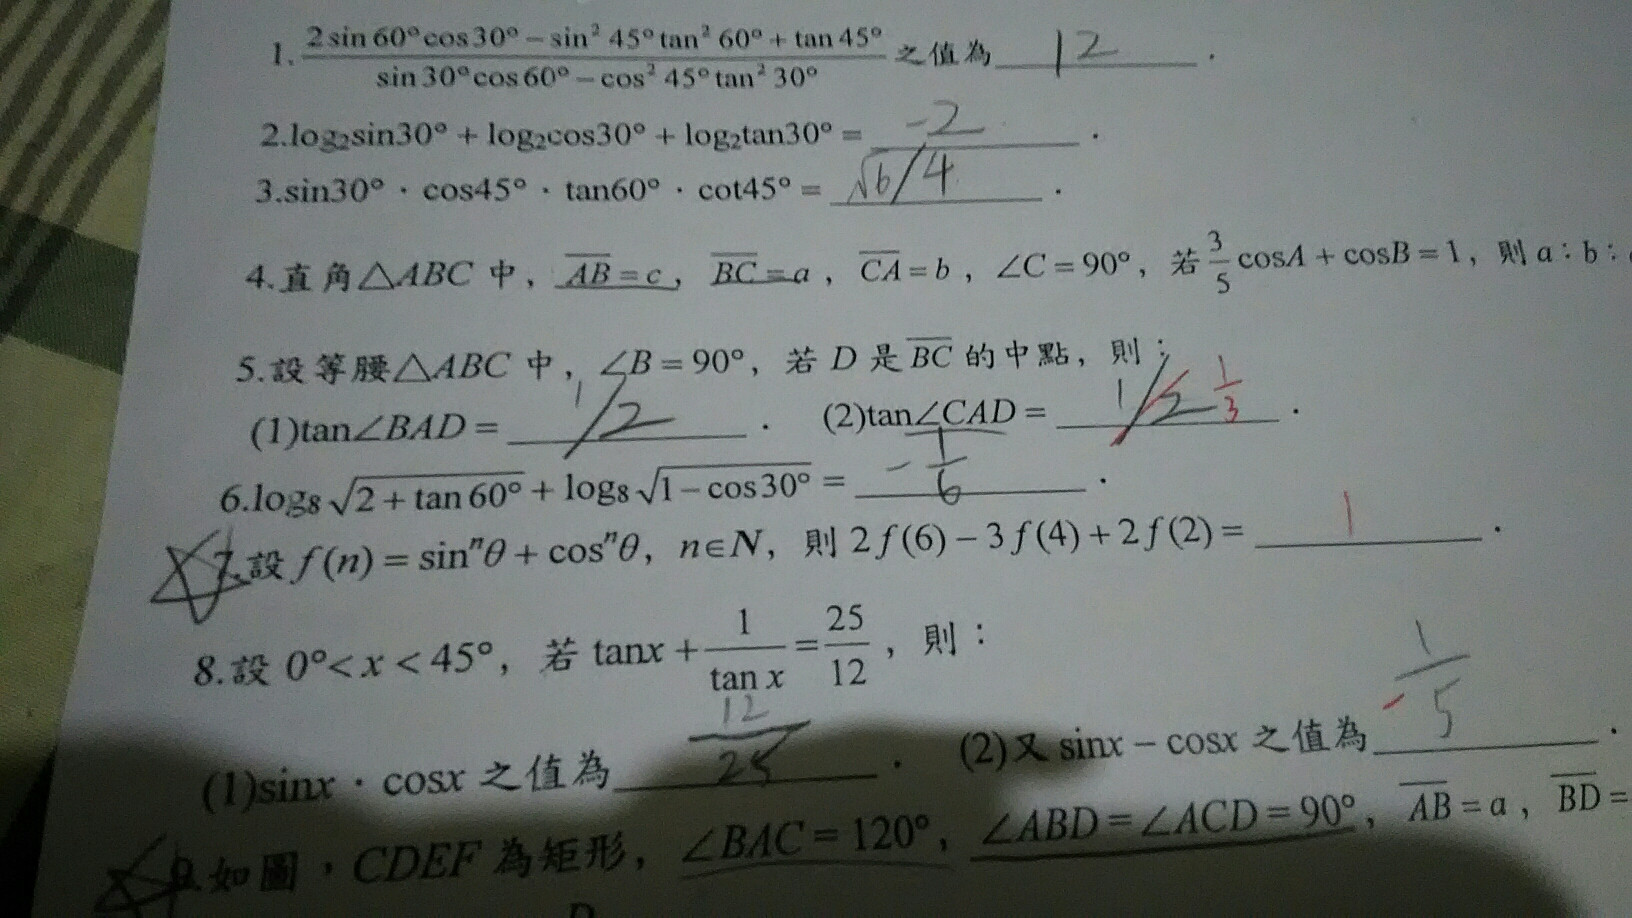 1. (2 sin 60° cos 30° − sin² 45° tan² 60° + tan 45°) / (sin 30° cos 60° − cos² 45° tan² 30°) 之值為 12 .
2.log₂sin30° + log₂cos30° + log₂tan30° = -2 .
3.sin30° · cos45° · tan60° · cot45° = √6/4 .
4.直角△ABC 中, AB = c, BC = a, CA = b, ∠C = 90°, 若 3/5 cosA + cosB = 1, 則 a : b :
5.設等腰△ABC 中, ∠B = 90°, 若 D 是 BC 的中點, 則:
(1)tan∠BAD = 1/2 . (2)tan∠CAD = 1/2 1/3 .
6.log₈√(2 + tan 60°) + log₈√(1 − cos 30°) = -1/6 .
7.設 f(n) = sinⁿθ + cosⁿθ, n∈N, 則 2f(6) − 3f(4) + 2f(2) = 1 .
8.設 0° < x < 45°, 若 tanx + 1/tan x = 25/12, 則:
(1)sinx · cosx 之值為 12/25 . (2)又 sinx − cosx 之值為 -1/5 .
9.如圖,CDEF 為矩形, ∠BAC = 120°, ∠ABD = ∠ACD = 90°, AB = a, BD =